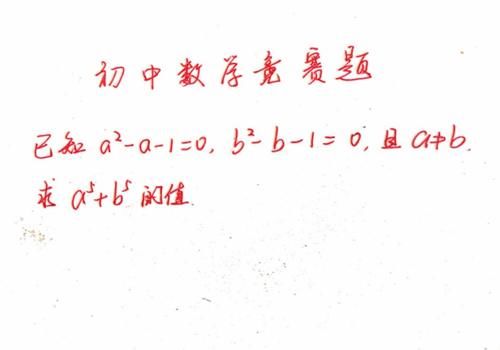 初中数学竞赛题
已知 a²-a-1=0, b²-b-1=0, 且 a≠b.
求 a⁵+b⁵ 的值.